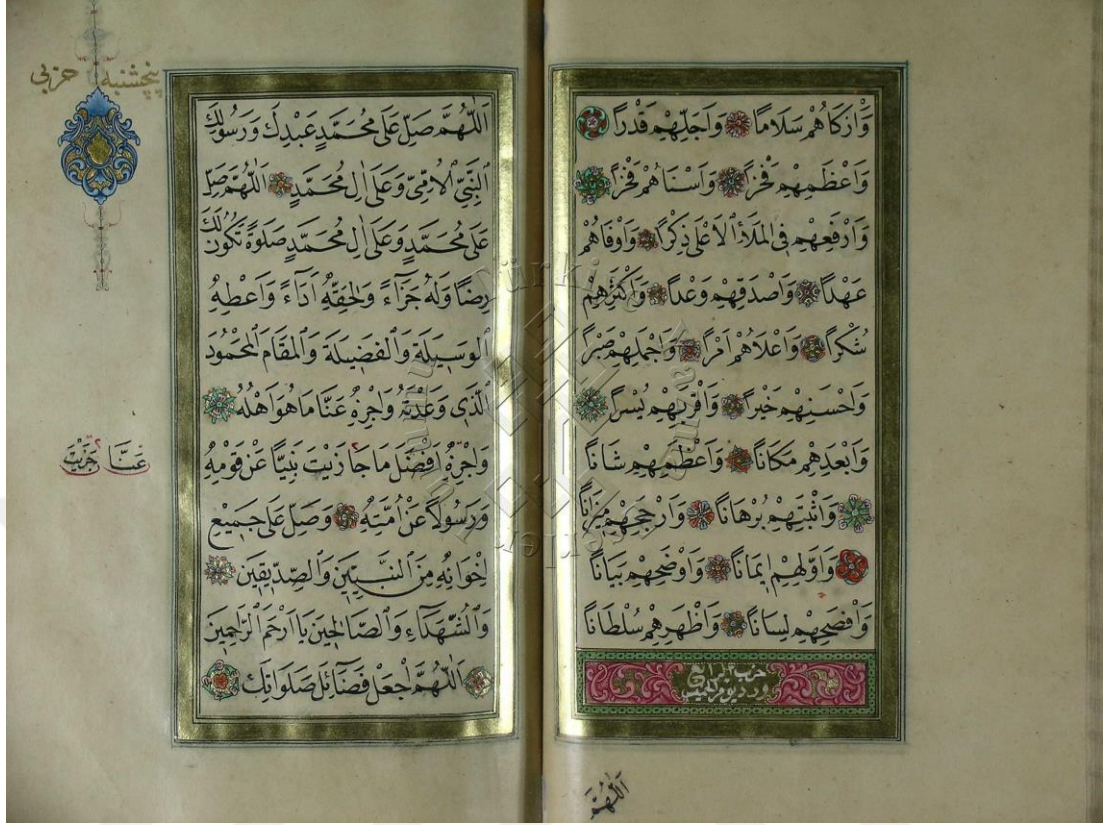 وَاَزْكَاهُمْ سَلَامًا وَاَجَلِّهِمْ قَدْرًا
وَاَعْظَمِهِمْ فَخْرًا وَاَسْنَاهُمْ فَخْرًا
وَاَرْفَعِهِمْ فِي الْمَلَأِ الْاَعْلٰى ذِكْرًا وَاَوْفَاهُمْ
عَهْدًا وَاَصْدَقِهِمْ وَعْدًا وَاَكْثَرِهِمْ
شُكْرًا وَاَعْلَاهُمْ اَمْرًا وَاَجْمَلِهِمْ صَبْرًا
وَاَحْسَنِهِمْ خَيْرًا وَاَقْرَبِهِمْ يُسْرًا
وَاَبْعَدِهِمْ مَكَانًا وَاَعْظَمِهِمْ شَانًا
وَاَثْبَتِهِمْ بُرْهَانًا وَاَرْجَحِهِمْ مِيزَانًا
وَاَوَّلِهِمْ اِيمَانًا وَاَوْضَحِهِمْ بَيَانًا
وَاَفْصَحِهِمْ لِسَانًا وَاَظْهَرِهِمْ سُلْطَانًا
حزب الرابع
ورد يوم الخميس
اَللّٰهُمَّ
پنچشنبه حزبى
اَللّٰهُمَّ صَلِّ عَلٰى مُحَمَّدٍ عَبْدِكَ وَرَسُولِكَ
النَّبِيِّ الْاُمِّيِّ وَعَلٰى اٰلِ مُحَمَّدٍ اَللّٰهُمَّ صَلِّ
عَلٰى مُحَمَّدٍ وَعَلٰى اٰلِ مُحَمَّدٍ صَلٰوةً تَكُونُ لَكَ
رِضًا وَلَهُ جَزَآءً وَلِحَقِّهٖ اَدَآءً وَاَعْطِهِ
الْوَسِيلَةَ وَالْفَضِيلَةَ وَالْمَقَامَ الْمَحْمُودَ
الَّذِي وَعَدْتَهُ وَاجْزِهِ عَنَّا مَا هُوَ اَهْلُهُ
وَاجْزِهِ اَفْضَلَ مَا جَازَيْتَ نَبِيًّا عَنْ قَوْمِهِ
وَرَسُولًا عَنْ اُمَّتِهِ وَصَلِّ عَلٰى جَمِيعِ
اِخْوَانِهِ مِنَ النَّبِيِّينَ وَالصِّدِّيقِينَ
وَالشُّهَدَآءِ وَالصَّالِحِينَ يَا اَرْحَمَ الرَّاحِمِينَ
اَللّٰهُمَّ اجْعَلْ فَضَآئِلَ صَلَوَاتِكَ